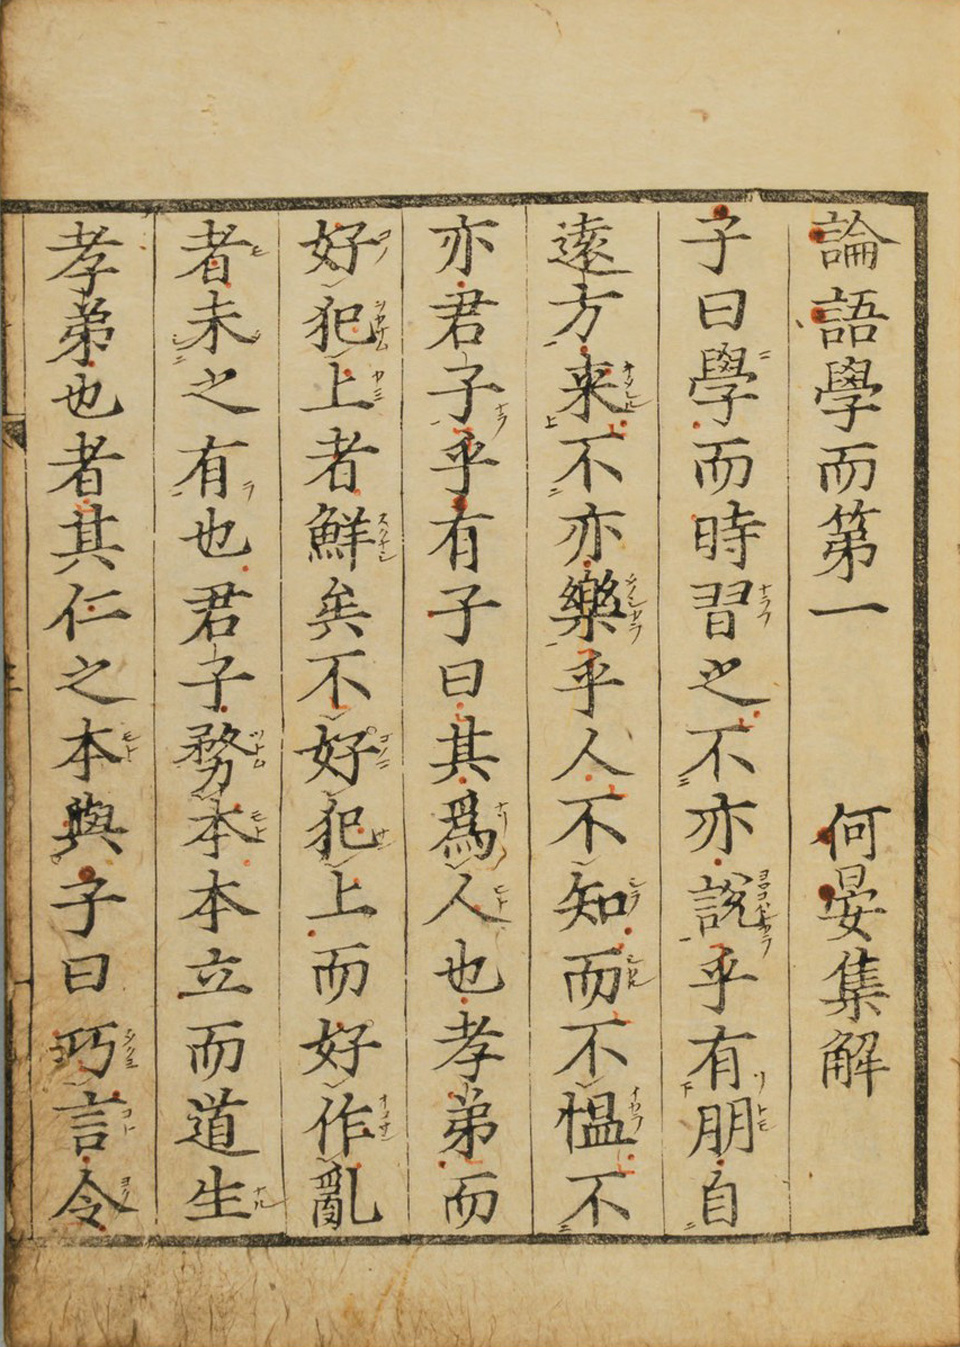 論語學而第一 何晏集解
子曰學而時習之不亦說乎有朋自
遠方来不亦樂乎人不知而不愠不
亦君子乎有子曰其爲人也孝弟而
好犯上者鮮矣不好犯上而好作亂
者未之有也君子務本本立而道生
孝弟也者其仁之本與子曰巧言令